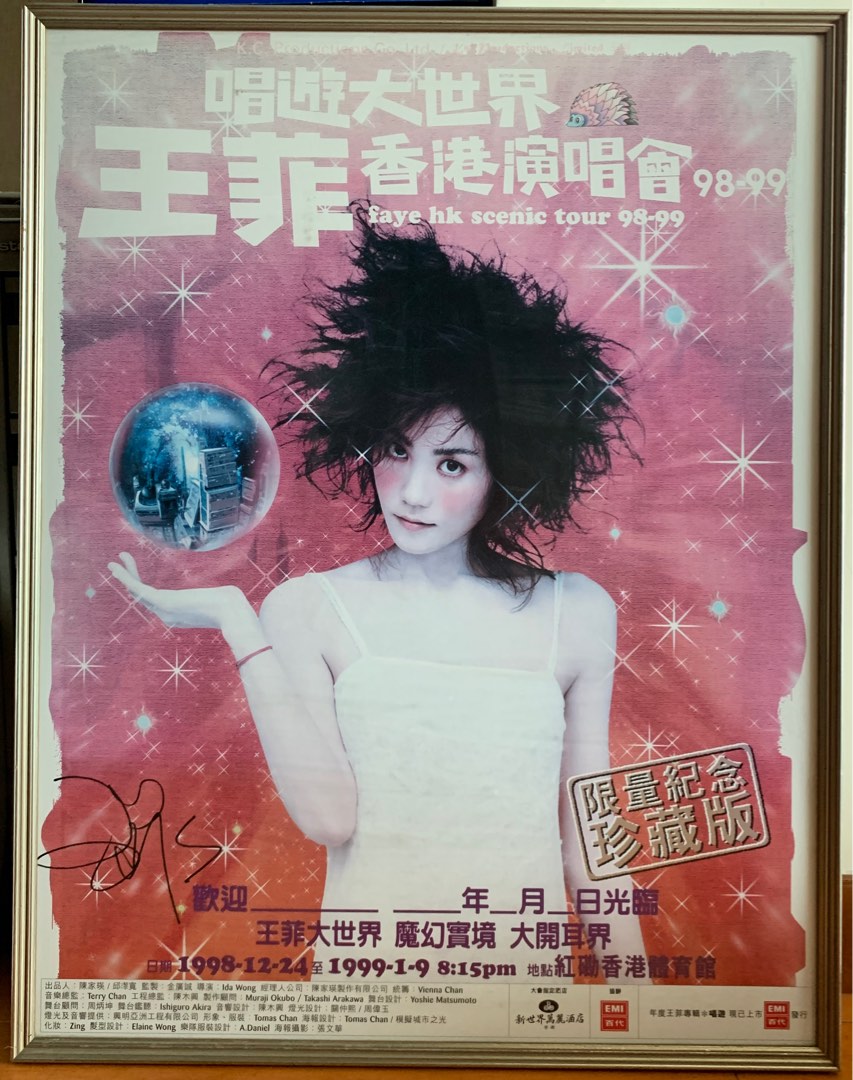 唱遊大世界
王菲香港演唱會 98-99
faye hk scenic tour 98-99
限量紀念
珍藏版
歡迎__________ _____年__月__日光臨
王菲大世界 魔幻實境 大開耳界
日期 1998-12-24至 1999-1-9 8:15pm 地點 紅磡香港體育館
出品人：陳家瑛／邱瓈寬 監製：金廣誠 導演：Ida Wong 經理人公司：陳家瑛製作有限公司 統籌：Vienna Chan
音樂總監：Terry Chan 工程總監：陳木興 製作顧問：Muraji Okubo / Takashi Arakawa 舞台設計：Yoshie Matsumoto
舞台顧問：周炳坤 舞台鑑聽：Ishiguro Akira 音響設計：陳木興 燈光設計：關仲熙／周偉玉
燈光及音響提供：興明亞洲工程有限公司 形象、服裝：Tomas Chan 海報設計：Tomas Chan / 模擬城市之光
化妝：Zing 髮型設計：Elaine Wong 樂隊服裝設計：A.Daniel 海報攝影：張文華
大會指定酒店
新世界萬麗酒店
香港
EMI
百代
年度王菲專輯※唱遊 現已上市
EMI
百代
發行